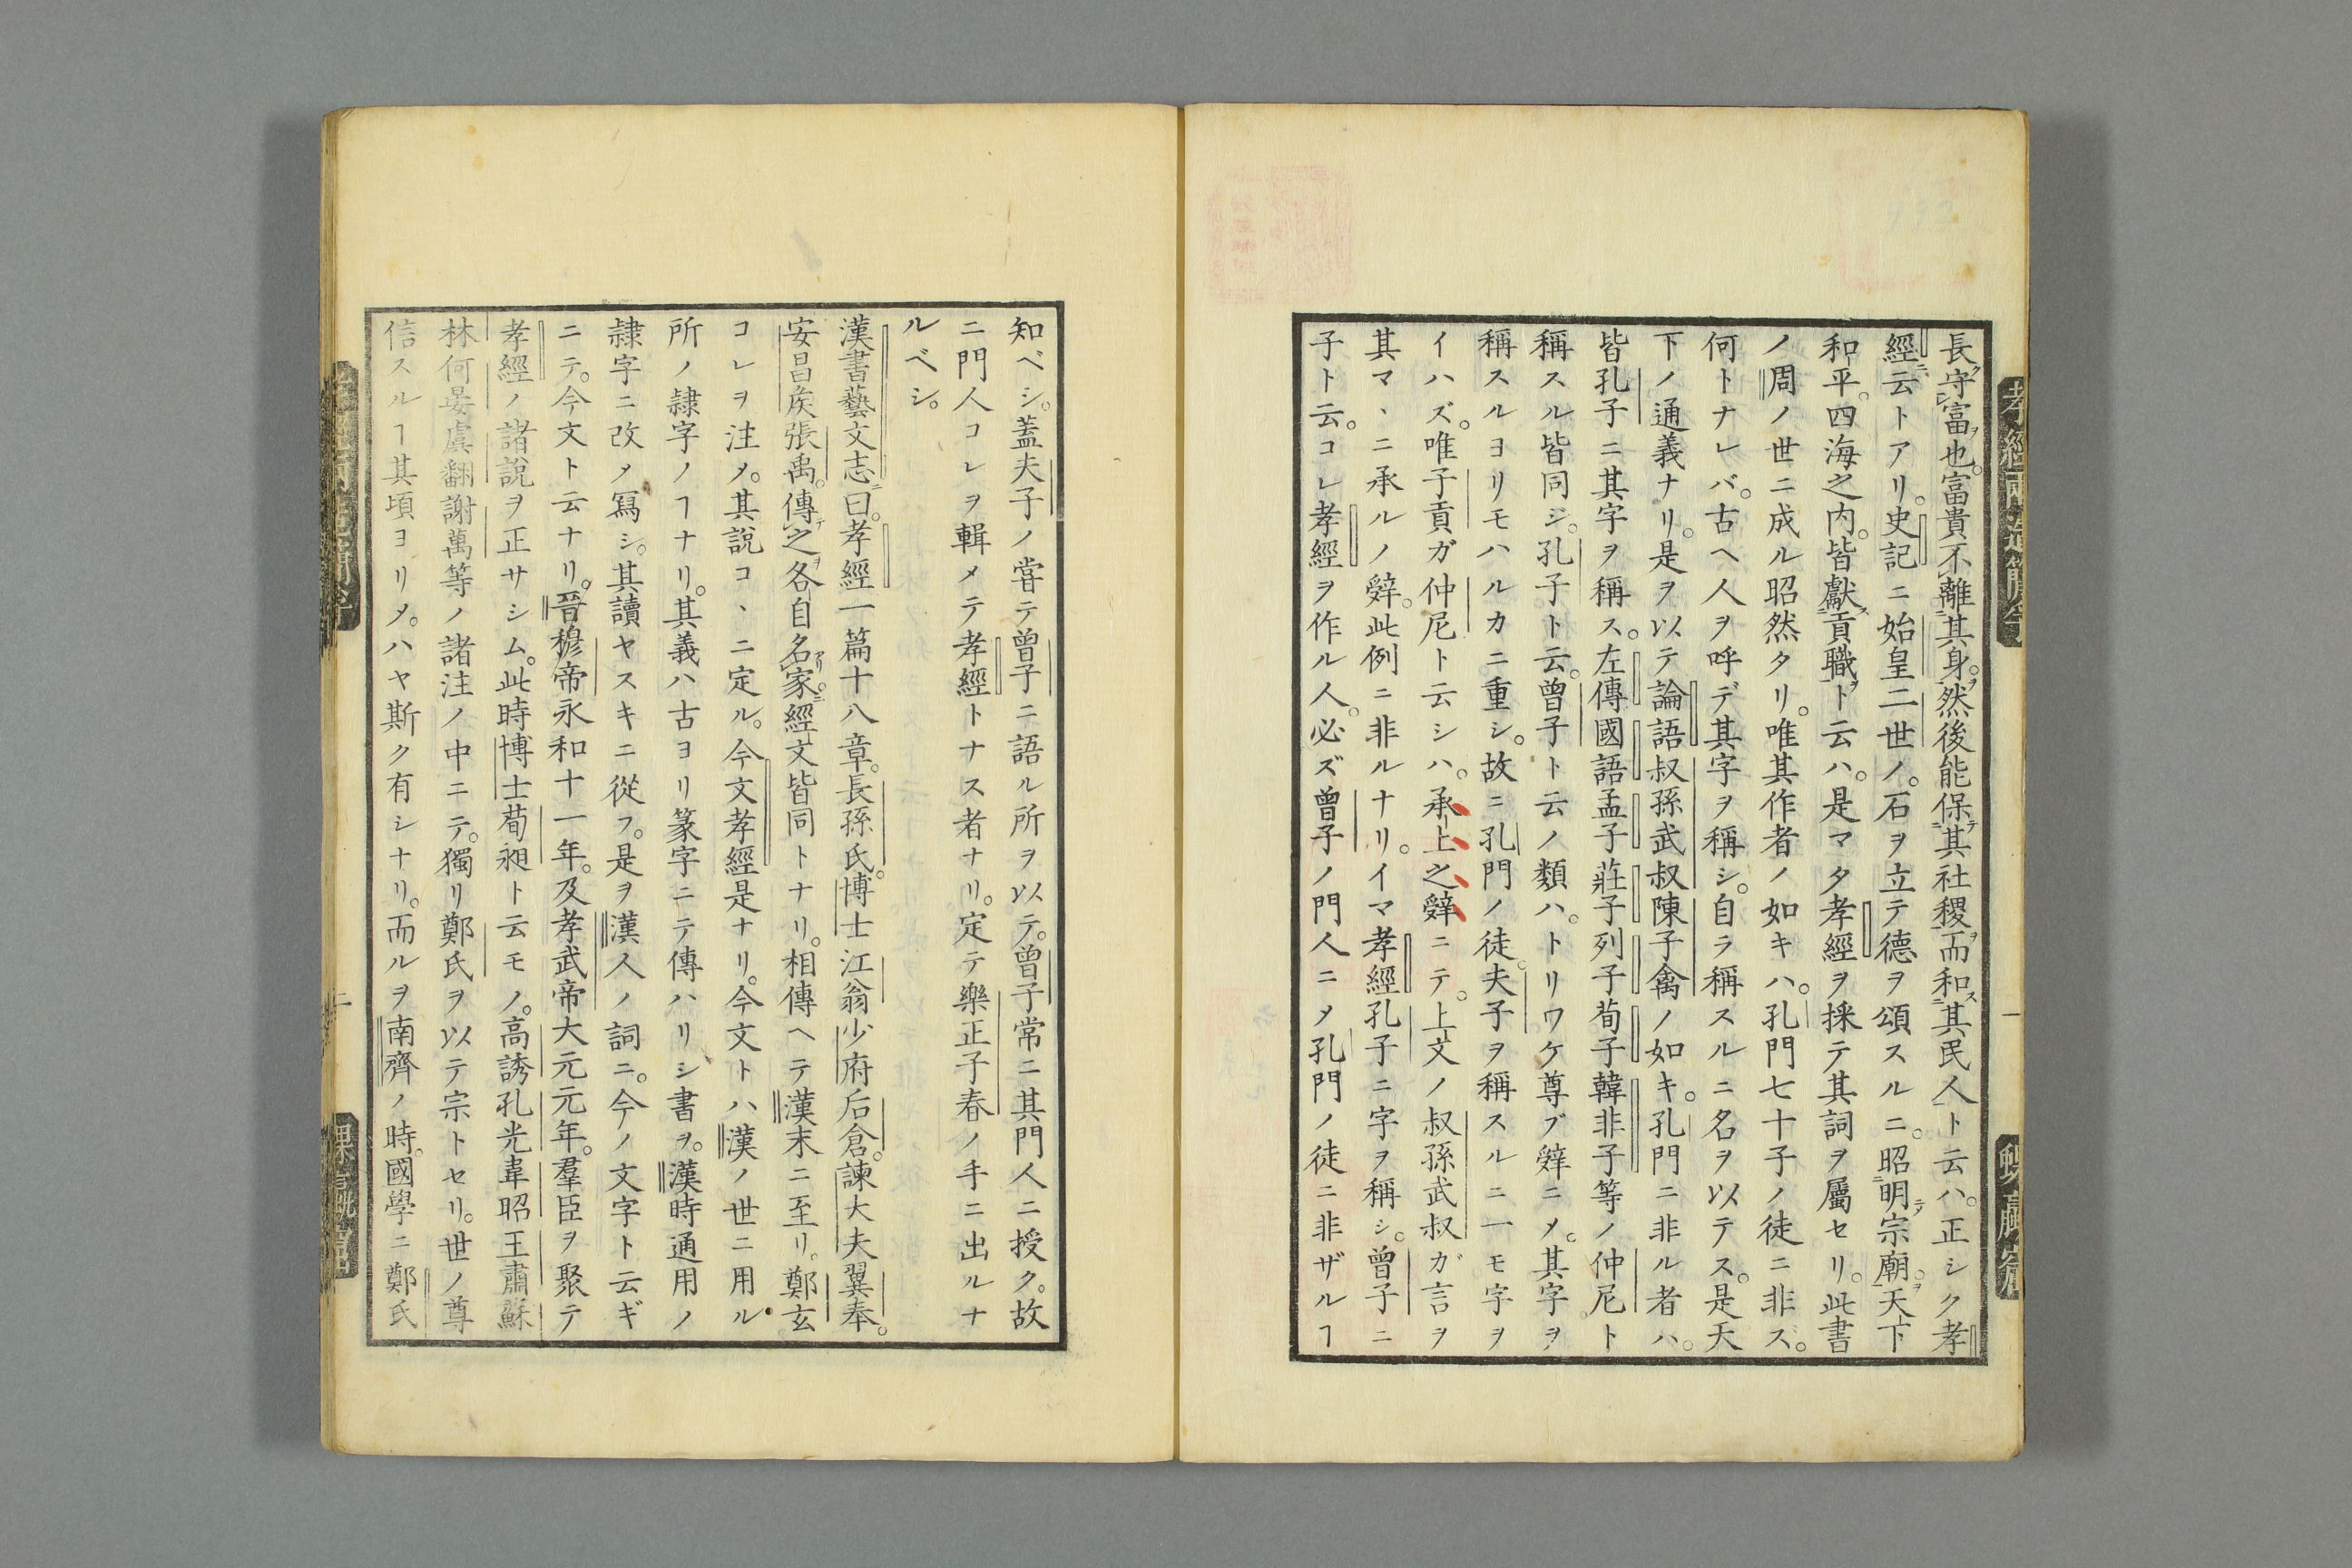 長守富也。富貴不離其身。然後能保其社稷而和其民人ト云ハ。正シク孝
經云トアリ。史記ニ始皇二世ノ。石ヲ立テ德ヲ頌スルニ。昭明宗廟。天下
和平。四海之内。皆獻貢職ト云ハ。是マタ孝經ヲ採テ其詞ヲ屬セリ。此書
ノ周ノ世ニ成ル昭然タリ。唯其作者ノ如キハ。孔門七十子ノ徒ニ非ズ。
何トナレバ。古ヘ人ヲ呼デ其字ヲ稱シ。自ラ稱スルニ名ヲ以テス。是天
下ノ通義ナリ。是ヲ以テ論語叔孫武叔陳子禽ノ如キ。孔門ニ非ル者ハ。
皆孔子ニ其字ヲ稱ス。左傳國語孟子莊子列子荀子韓非子等ノ仲尼ト
稱スル皆同ジ。孔子ト云。曾子ト云ノ類ハ。トリワケ尊ブ辤ニメ。其字ヲ
稱スルヨリモハルカニ重シ。故ニ孔門ノ徒。夫子ヲ稱スルニ一モ字ヲ
イハズ。唯子貢ガ仲尼ト云シハ。承上之辤ニテ。上文ノ叔孫武叔ガ言ヲ
其マヽニ承ルノ辤。此例ニ非ルナリ。イマ孝經孔子ニ字ヲ稱シ。曾子ニ
子ト云。コレ孝經ヲ作ル人。必ズ曾子ノ門人ニメ孔門ノ徒ニ非ザルヿ
知ベシ。蓋夫子ノ甞テ曾子ニ語ル所ヲ以テ。曾子常ニ其門人ニ授ク。故
ニ門人コレヲ輯メテ孝經トナス者ナリ。定テ樂正子春ノ手ニ出ルナ
ルベシ。
漢書藝文志曰。孝經一篇十八章。長孫氏。博士江翁少府后倉。諫大夫翼奉。
安昌侯張禹。傳之各自名家。經文皆同トナリ。相傳ヘテ漢末ニ至リ。鄭玄
コレヲ注メ。其說コヽニ定ル。今文孝經是ナリ。今文トハ漢ノ世ニ用ル
所ノ隷字ノヿナリ。其義ハ古ヨリ篆字ニテ傳ハリシ書ヲ。漢時通用ノ
隷字ニ改メ寫シ。其讀ヤスキニ從フ。是ヲ漢人ノ詞ニ。今ノ文字ト云ギ
ニテ。今文ト云ナリ。晉穆帝永和十一年。及孝武帝大元元年。羣臣ヲ聚テ
孝經ノ諸說ヲ正サシム。此時博士荀昶ト云モノ。高誘孔光韋昭王肅蘇
林何晏虞翻謝萬等ノ諸注ノ中ニテ。獨リ鄭氏ヲ以テ宗トセリ。世ノ尊
信スルヿ其頃ヨリメ。ハヤ斯ク有シナリ。而ルヲ南齊ノ時。國學ニ鄭氏